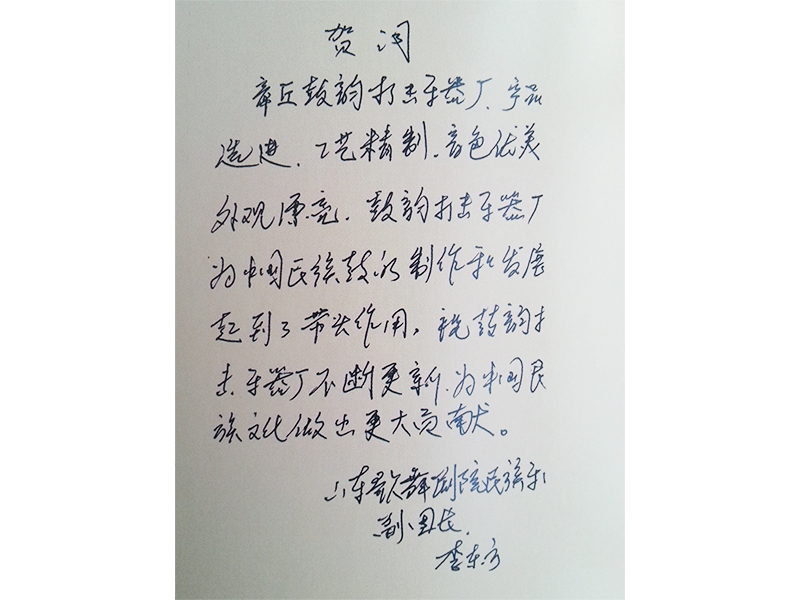 贺词
章丘鼓韵打击乐器厂、产品
选进、工艺精制、音色优美
外观漂亮、鼓韵打击乐器厂
为中国民族鼓的制作和发展
起到了带头作用，祝鼓韵打
击乐器厂不断更新、为中国民
族文化做出更大贡献。
山东歌舞剧院民族乐
副团长
李东方